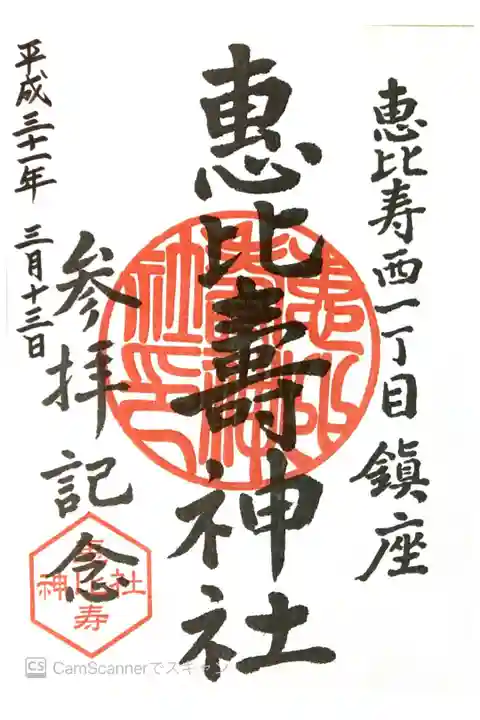 恵比寿西一丁目鎮座
恵比壽神社
参拝記念
平成三十一年 三月十三日
恵比寿
神社
CS CamScannerでスキャン